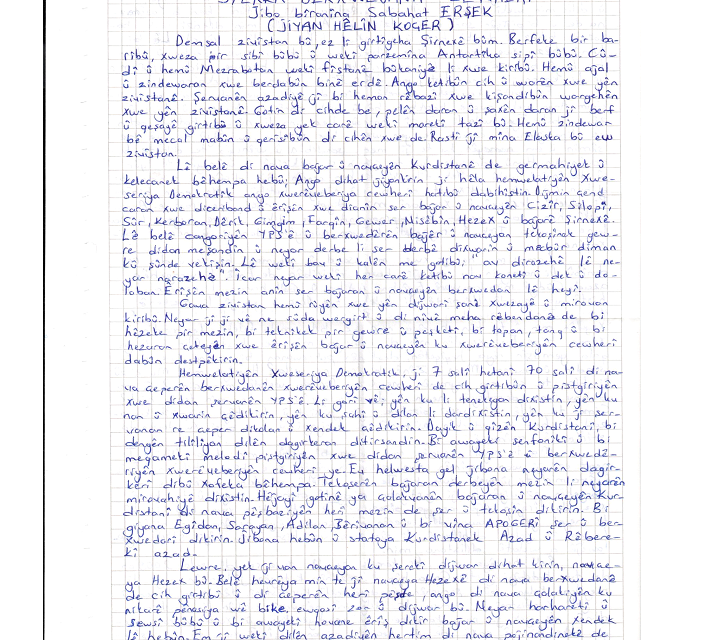 Jibo bîranîna Sabahat ERŞEK
(JÎYAN HÊLÎN KOGER)
Demsal zivistan bû, ez li girtîgeha Şirnexê bûm. Berfeke bir ba-
ribû, xweza pir sibî bûbû û wekî parzemîna Antartîka sipî bûbû. Cû-
dî û hemû Mezrabotan wekî fîstanê bûkaniyê li xwe kiribû. Hemû ajal
û zindewaran xwe berdabûn binê erdê. Ango ketibûn cih û warên xwe yên
zivistanê. Şervanên azadiyê jî bi heman rêbazî xwe kişandibûn wargehên
xwe yên zivistanê. Gotin di cihde be, pelên daran û şaxên daran ji berf
û qeşayê girtibû û xweza yek carê wekî moretî tazî bû. Hemû zindewar
bê mecal mabûn û qerisîbûn di cihên xwe de. Rastî jî mîna Elaska bû ew
zivistan.
Lê belê di nava bajar û navçeyên Kurdistanê de germahiyek û
kelecanek bêhempa hebû; Ango dihat jiyankirin ji hêla hemwelatiyên Xwe-
seriya Demokratîk ango xwerêveberiya cewherî hatibû dabihîstin. Dijmin çend
caran xwe diceriband û êrîşên xwe dianîn ser bajar û navçeyên Cizîr, Silopî,
Sûr, Kerboran, Dêrik, Gimgim, Farqîn, Gewer, Nisêbîn, Hezex û bajarê Şirnexê.
Lê belê cançoriyên YPS'ê û berxwedêrên bajêr û navçeyan têkoşînek gew-
re didan meşandin û neyar derbe li ser derbê dixwarin û mecbûr diman
ku şûnde vekişin. Lê wekî bav û kalên me gotibû; "av dirazehê lê ne-
yar narazehê". Îcar neyar wekî her carê ketibû nav konetî û dek û do-
laban. Êrîşên mezin anîn ser bajaran û navçeyên berxwedan lê heyî.
Gava zivistan hemû rûyên xwe yên dijwarî şanê xwezayê û mirovan
kiribû. Neyar jî ji vê ne sûda wergirt û di nîvê meha rêbendanê de bi
hêzeke pir mezin, bi teknîkek pir gewre û pêşketî, bi topan, tang û bi
hezaran çeteyên xwe êrîşên bajar û navçeyên ku xwerêveberiyên cewherî
dabûn destpêkirin.
Hemwelatiyên Xweseriya Demokratîk, ji 7 salî hetanî 70 salî di na-
va çeperên berxwedanên xwerêveberiyên cewherî de cih girtibûn û piştgiriyên
xwe didan şervanên YPS'ê. Li gorî vê; yên ku li tenekeyan dixistin, yên ku
nan û xwarin çêdikirin, yên ku şahî û dîlan li dardixistin, yên ku ji şer-
vanan re çeper dikolan û xendek çêdikirin. Dayik û qîzên Kurdistanî, bi
dengên tilîliyan dilên dagirkeran ditirsandin. Bi awayekî senfonîkî û bi
megametî melodî piştgiriyên xwe didan şervanên YPS'ê û berxwedê-
riyên xwerêveberiyên cewherî ye. Ev helwesta gel jibona neyarên dagir-
kerî dibû xofeka bêhempa. Têkoşerên bajaran derbeyên mezin li neyarên
mirovahiyê dixistin. Hêjayî gotinê ya çalakvanên bajaran û navçeyên Kur-
distanî di nava pêşbaziyên herî mezin de şer û têkoşîn dikirin. Bi
giyana Egîdan, Sarayan, Adilan, Bêrîvanan û bi vîna APOGERÎ şer û ber-
xwedarî dikirin. Jibona hebûn û statoya Kurdistanek Azad û Rêbere-
kî azad.
Lewre, yek ji van navçeyan ku şerekî dijwar dihat kirin, navçe-
ya Hezex bû. Belê hevrêya min te jî navçeya Hezexê di nava berxwedanê
de cih girtibû û di çeperên herî pêşde, ango di nava qalatiyên ku
nikarê pênasîya wê bike, ewqasî zor û dijwar bû. Neyar harhoretî û
şewşî bûbû û bi awayekî hovane êrîş dikir bajar û navçeyên xendek
lê hebûn. Em jî wekî dilên azadiyên hertim di nava